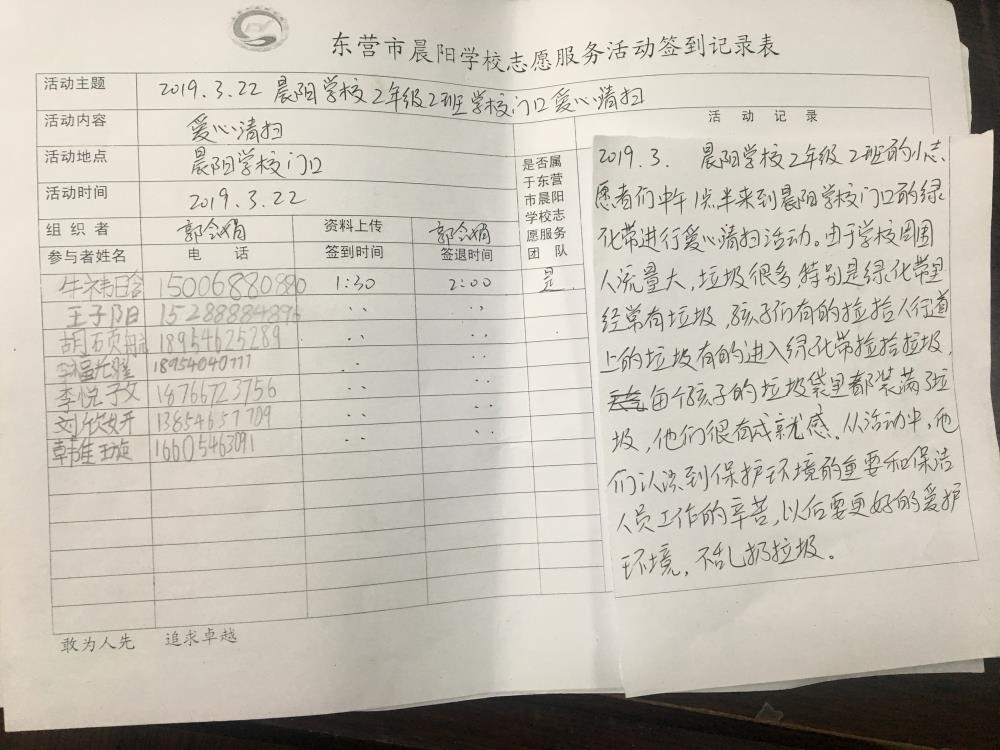 东营市晨阳学校志愿服务活动签到记录表
活动主题 2019.3.22 晨阳学校2年级2班学校门口爱心清扫
活动内容 爱心清扫
活动地点 晨阳学校门口
活动时间 2019.3.22
是否属
于东营
市晨阳
学校志
愿服务
团 队
组织者 资料上传
参与者姓名 电 话 签到时间 签退时间
15006880880 1:30 2:00 是
王子阳
胡硕航 18954625289
18954040777
李悦孜 18766723756
13854657709
韩佳璇 16605463091
敢为人先 追求卓越
活 动 记 录
2019.3. 晨阳学校2年级2班的小志
愿者们中午1点半来到晨阳学校门口的绿
化带进行爱心清扫活动。由于学校周围
人流量大，垃圾很多特别是绿化带里
经常有垃圾，孩子们有的捡拾人行道
上的垃圾有的进入绿化带捡拾垃圾，
每个孩子的垃圾袋里都装满了垃
圾，他们很有成就感。从活动中，他
们认识到保护环境的重要和保洁
人员工作的辛苦，以后要更好的爱护
环境，不乱扔垃圾。